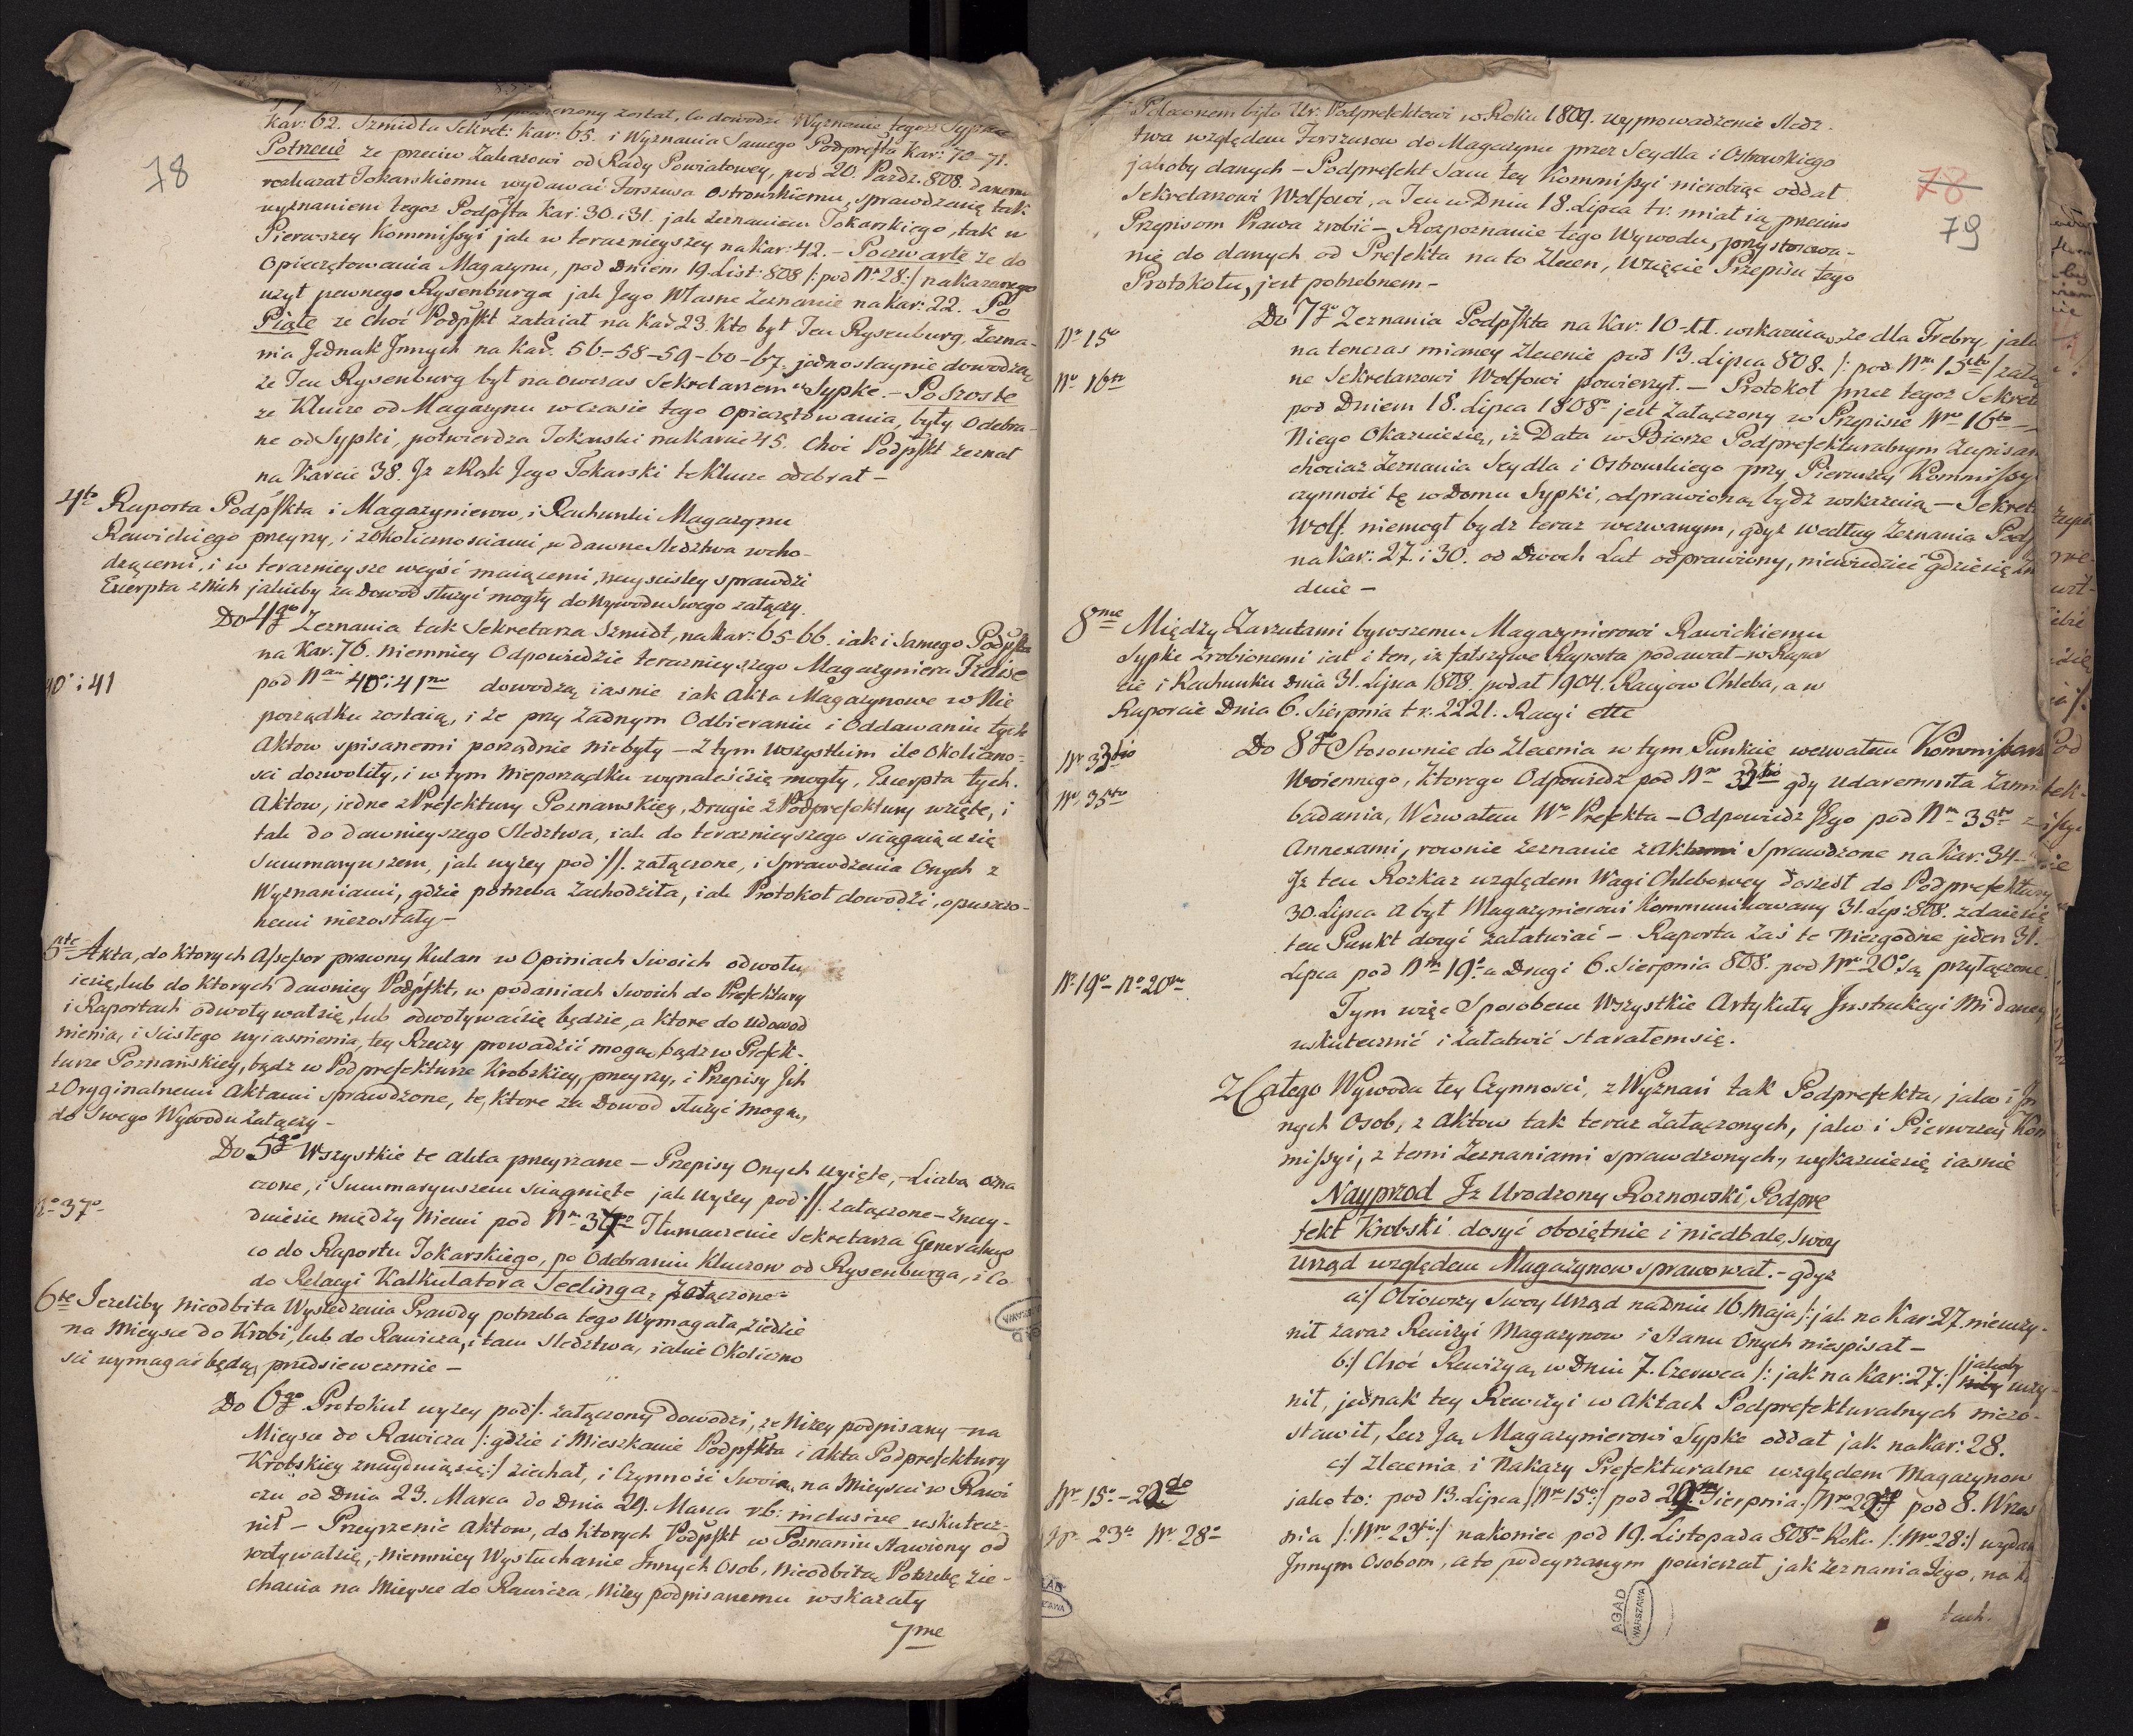 78
powierzony został, Co dowodzi Wyznanie tegoż Sypki
Kar: 62. Szmidta Sekret: Kar: 65. i Wyznania Samego Podprefta Kar: 70-71.
Potrzecie że przeciw Zakazowi od Rady Powiatowey, pod 20. Pazdz. 808. danemu
rozkazał Tokarskiemu wydawać Forszusa Ostrowskiemu, sprawdzenie tak
wyznaniem tegoż Podpfta Kar: 30. i 31. jak Zeznaniem Tokarskiego, tak w
Pierwszey Kommissyi jak w terazniejszey na Kar: 42. - Poczwarte że do
Opieczętowania Magazynu, pod Dniem 19. List: 808 /: pod No 28:/ nakazanego
użył pewnego Rysenburga jak Jego Własne Zeznanie na Kar: 22. Po
Piąte że Choć Podpfkt zataiał na Kar 23. Kto był Ten Rysenburg. Zezna-
nia Jednak Innych na Kar. 56-58-59-60-67. jednostaynie dowodzą
że Ten Rysenburg był na owczas Sekretarzem u Sypke. - Poszoste
że Klucze od Magazynu w czasie tego Opieczętowania, były Odebra-
ne od Sypki, potwierdza Tokarski na Karcie 45. Choć Podpfkt Zeznał
na Karcie 38. Iż z Rąk Jego Tokarski te Klucze odebrał -
4to Raporta Podpfkta i Magazynierow, i Rachunki Magazynu
Rawickiego przeyrzy, i z Okolicznosciami, w dawne Sledztwa wcho-
dzącemi, i w terazniejsze weyść maiącemi, nayscisley sprawdzi
Excerpta z Nich jakieby za Dowod służyć mogły do Wywodu Swego załączy.
Do 4go Zeznania tak Sekretarza Szmidt, na Kar: 65-66. iak i Samego Podpfkta
na Kar. 76. niemniey Odpowiedzie teraznieyszego Magazyniera Fidise
40o i 41
pod No 40o i 41mo dowodzą iasnie iak Akta Magazynowe w Nie
porządku zostaią, i że przy żadnym Odbieraniu i Oddawaniu tych
Aktow spisanemi porządnie niebyły - Z tym wszystkim ile Okoliczno-
sci dozwoliły, i w tym Nieporządku wynaleść się mogły, Excerpta tych
Aktow, iedne z Prefektury Poznanskiey, Drugie z Podprefektury wzięte, i
tak do dawnieyszego Sledztwa, iak do teraznieyszego sciągaiące się
Summaryuszem, jak wyżey pod //. załączone, i sprawdzenia Onych z
Wyznaniami, gdzie potrzeba Zachodziła, iak Protokoł dowodzi, opuszczo-
nemi niezostały -
5te Akta, do Ktorych Assessor prawny Kulan w Opiniach Swoich odwołu
ie się, lub do Ktorych dawniey Podpfkt, w podaniach Swoich do Prefektury
i Raportach odwoływał się, lub odwoływać się będzie, a Ktore do Udowod
nienia, i Scisłego wyiasnienia, tey Rzeczy prowadzić mogą, bądz w Prefek-
turze Poznańskiey, bądz w Podprefekturze Krobskiey, przeyrzy, i Przepisy Ich
z Oryginalnemi Aktami sprawdzone, te, Ktore za Dowod służyć mogą,
do Swego Wywodu Załączy -
Do 5go Wszystkie te akta przeyrzane - Przepisy Onych wyięte, - Liczbą ozna
czone, i Summaryuszem sciągnięte jak wyżey pod //. załączone - Znay-
No 37o
duie się między Niemi pod No 37o Tłumaczenie Sekretarza Generalnego
co do Raportu Tokarskiego, po Odebraniu Kluczow od Rysenburga, i Co
do Relacyi Kalkulatora Seelinga, załączone -
6te Jeżeliby Nieodbita Wysledzenia Prawdy potrzeba tego Wymagała, ziedzie
na Mieysce do Krobi, lub do Rawicza, i tam Sledztwa, iakie Okoliczno
sci wymagać będą, przedsiewezmie -
Do 6go Protokuł wyżey pod /. załączony dowodzi, że Niżey podpisany - na
Mieysce do Rawicza /: gdzie i Mieszkanie Podpfkta i Akta Podprefektury
Krobskiey znayduią się:/ ziechał, i Czynność Swoią, na Mieyscu w Rawi
czu od Dnia 23. Marca do Dnia 29. Marca rb: inclusive uskutecz-
nił - Przeyrzenie Aktow, do Ktorych Podpfkt w Poznaniu Stawiony od
woływał się, - niemniey Wysłuchanie Innych Osob, Nieodbitą Potrzebę Zie-
chania na Mieysce do Rawicza, Niżey podpisanemu wskazały
7me
78
79
Poleconem było Ur: Podprefektowi w Roku 1809. wyprowadzenie Sledz-
twa względem Forszusow do Magazynu przez Seydla i Ostrowskiego
jakoby danych - Podprefekt Sam tey Kommissyi nierobiąc oddał
Sekretarzowi Wolfowi, a Ten w Dniu 18. Lipca t.r. miał ią przeciw
Przepisom Prawa zrobić - Rozpoznanie tego Wywodu, przystosowa-
nie do danych od Prefekta na to Zlecen, Wzięcie Przepisu tego
Protokołu, jest potrzebnem -
No 15o
No 16to
Do 7go Zeznania Podpfkta na Kar: 10-11. wskazuią, że dla Febry, jako
na tenczas mianey Zlecenie pod 13. Lipca 808. /: pod Nm 15to / zała
ne Sekretarzowi Wolfowi powierzył. - Protokoł przez tegoż Sekret
pod Dniem 18. Lipca 1808o jest Załączony w Przepisie Nro 16to -
Niego Okazuie się, iż Data w Biorze Podprefekturalnym Zapisan
chociaż Zeznania Seydla i Ostrowskiego przy Pierwszey Kommissy
czynność tę w Domu Sypki, odprawioną bydz wskazuią - Sekret
Wolf. niemogł bydz teraz wezwanym, gdyż według Zeznania Podp
na Kar: 27. i 30. od Dwoch Lat odprawiony, niewiedzieć gdzie się zn
duie -
8me Między Zarzutami bywszemu Magazynierowi Rawickiemu
Sypke Zrobionemi iest i ten, iż fałszywe Raporta podawał - w Rapor
cie i Rachunku Dnia 31. Lipca 1808. podał 1904. Racyow Chleba, a w
Raporcie Dnia 6. Sierpnia t.r. 2221. Racyi etc
Nr 33tio
No 35to
Do 8go Stosownie do Zlecenia w tym Punkcie wezwałem Kommissarza
Woiennego, Ktorego Odpowiedz pod Nro 33tio gdy udaremniła Zami
badania, Wezwałem Wo Prefekta - Odpowiedz Jego pod Nm 35to z
Annexami, rownie Zeznanie z Aktami Sprawdzone na Kar: 34 -
Iż ten Rozkaz względem Wagi Chlebowey doszedł do Podprefektury
30. Lipca a był Magazynierowi Kommunikowany 31. Lip: 808. zdaie się
ten Punkt dosyć załatwiać - Raporta Zaś te Niezgodne jeden 31.
No 19o - No 20mo
Lipca pod Nm 19o a Drugi 6. Sierpnia 808. pod Nro 20o Są przyłączone.
Tym więc Sposobem Wszystkie Artykuły Instrukcyi Mi daney
uskutecznić i Załatwić starałem się.
Z Całego Wywodu tey Czynności, z Wyznań tak Podprefekta, jako i In
nych Osob, z Aktow tak teraz Załączonych, jako i Pierwszey Kom
missyi, z temi Zeznaniami sprawdzonych, wykazuie się iasnie
Nayprzod Iż Urodzony Roznowski, Podpre
fekt Krobski dosyć oboiętnie i niedbale, Swoy
Urząd względem Magazynow sprawował. - gdyż
a:/ Obiowszy Swoy Urząd na Dniu 16 Maja /: jak na Kar: 27. nieuczy-
nił zaraz Rewizyi Magazynow i Stanu Onych niespisał -
b:/ Choć Rewizyą, w Dniu 7. Czerwca /: jak na Kar: 27:/ jakoby uczy-
nił, jednak tey Rewizyi w Aktach Podprefekturalnych niezo-
stawił, Lecz Ją, Magazynierowi Sypke oddał jak na Kar: 28.
c:/ Zlecenia i Nakazy Prefekturalne względem Magazynow
Nr 15o - 22do
jako to: pod 13. Lipca /: Nro 15o:/ pod 29. Sierpnia /: Nro 22:/ pod 8. Wrzes
No 23o No 28o
nia /: Nro 23tio:/ nakoniec pod 19. Listopada 808o Roku /: Nro 28:/ wydan
Innym Osobom, a to podeyrzanym powierzał, jak Zeznania Jego, na K
tach.
AGAD
WARSZAWA